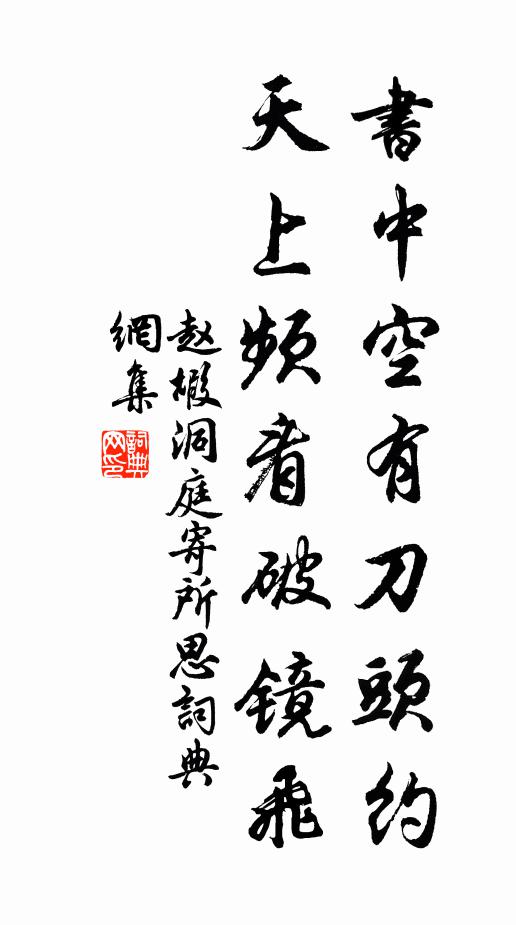 書中空有刀頭約
天上頻看破镜飛
赵嘏洞庭寄所思詞典
網集
詞典
网印